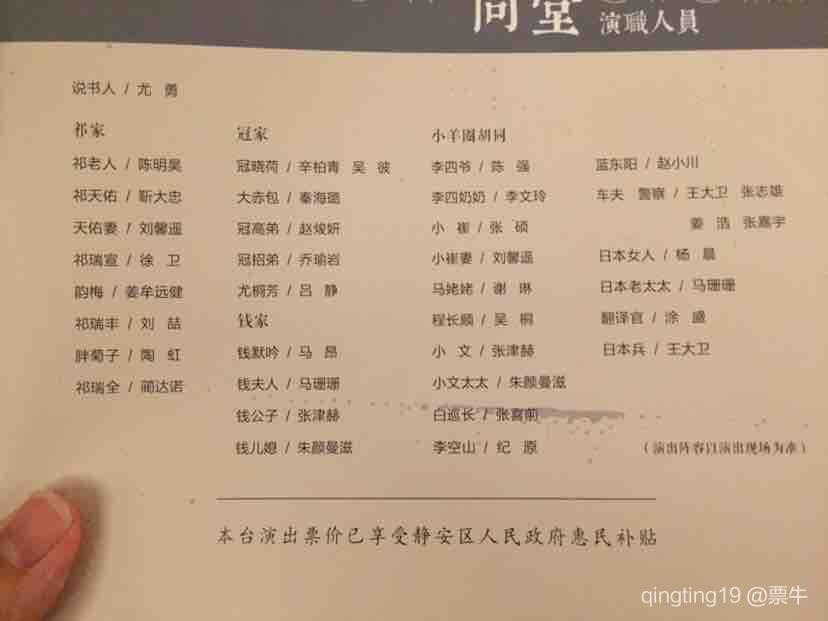 同堂
演職人員
说书人 / 尤 勇
祁家
祁老人 / 陈明昊
祁天佑 / 靳大忠
天佑妻 / 刘馨遥
祁瑞宣 / 徐 卫
韵梅 / 姜牟远健
祁瑞丰 / 刘 喆
胖菊子 / 陶 虹
祁瑞全 / 蔺达诺
冠家
冠晓荷 / 辛柏青 吴 彼
大赤包 / 秦海璐
冠高弟 / 赵焌妍
冠招弟 / 乔瑜岩
尤桐芳 / 吕 静
钱家
钱默吟 / 马 昂
钱夫人 / 马珊珊
钱公子 / 张津赫
钱儿媳 / 朱颜曼滋
小羊圈胡同
李四爷 / 陈 强
李四奶奶 / 李文玲
小 崔 / 张 硕
小崔妻 / 刘馨遥
马姥姥 / 谢 琳
程长顺 / 吴 桐
小 文 / 张津赫
小文太太 / 朱颜曼滋
白巡长 / 张喜前
李空山 / 纪 原
蓝东阳 / 赵小川
车夫 警察 / 王大卫 张志雄
姜 浩 张嘉宇
日本女人 / 杨 晨
日本老太太 / 马珊珊
翻译官 / 涂 盛
日本兵 / 王大卫
(演出阵容以演出现场为准)
本台演出票价已享受静安区人民政府惠民补贴
qingting19 @票牛